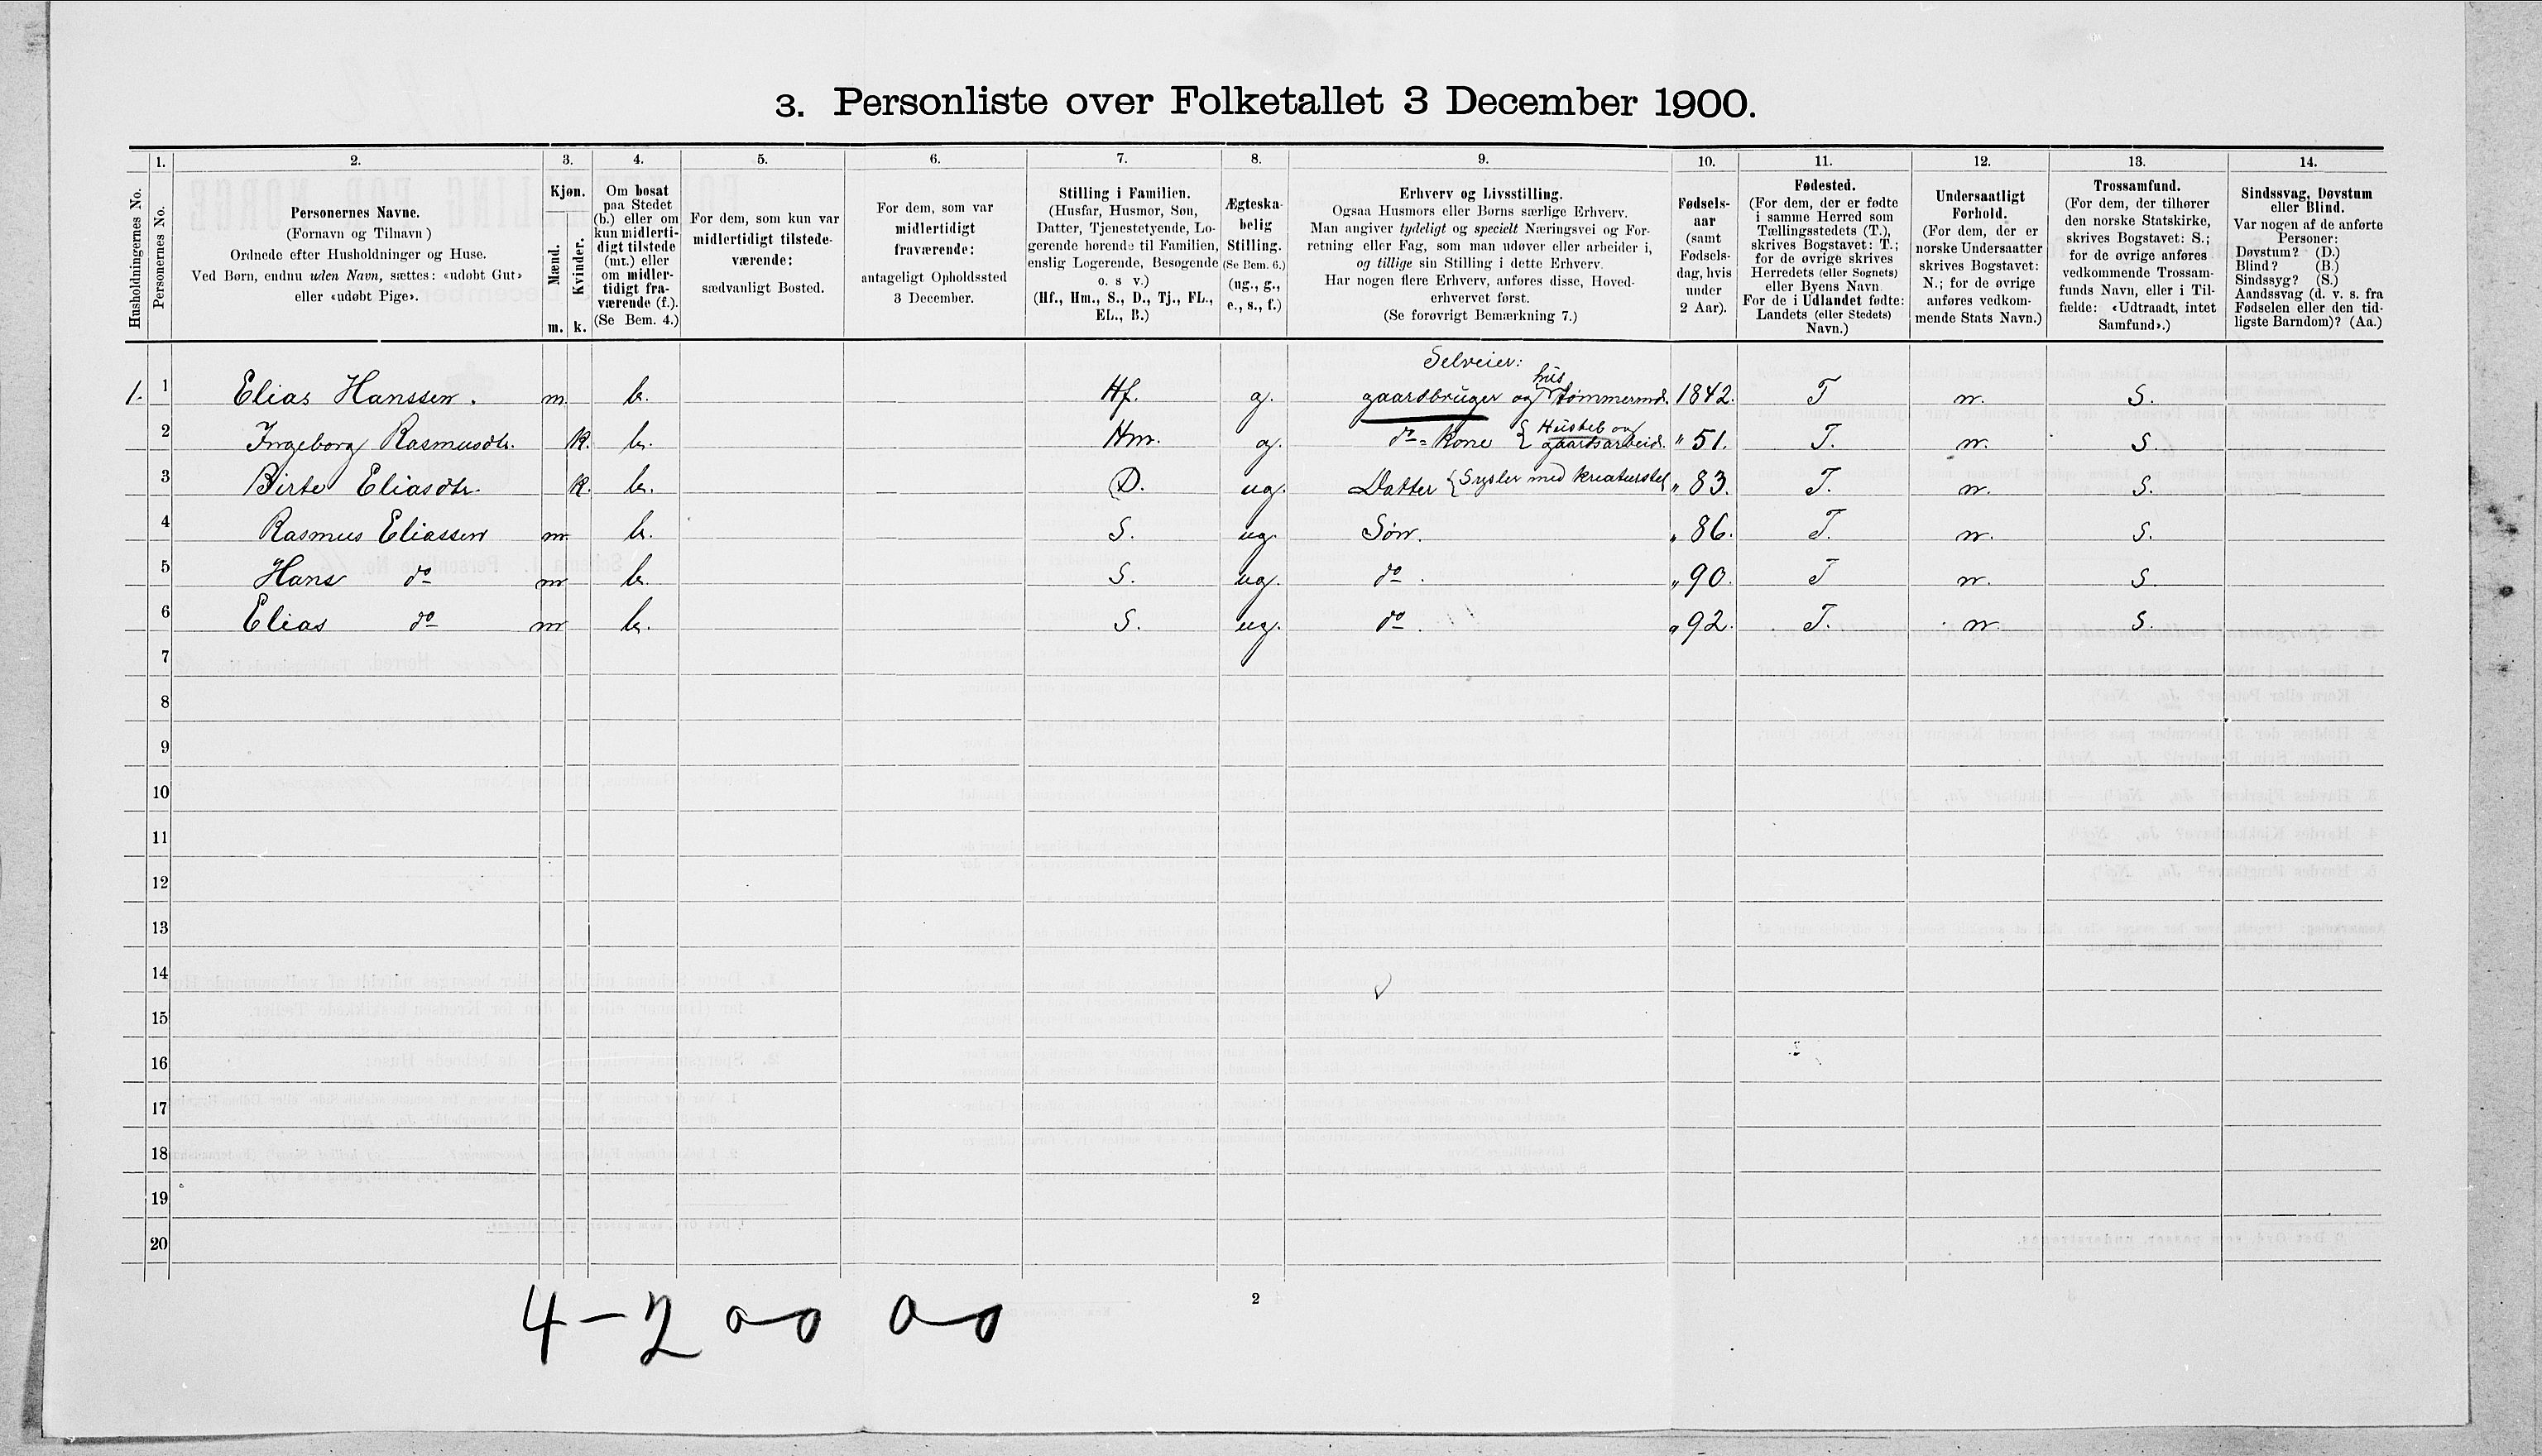 3. Personliste over Folketallet 3 December 1900.
Husholdningernes No.
1. Personernes No.
2. Personernes Navne.
(Fornavn og Tilnavn )
Ordnede efter Husholdninger og Huse.
Ved Børn, endnu uden Navn, sættes: «udøbt Gut»
eller «udøbt Pige».
3. Kjøn.
Mænd. m.
Kvinder. k.
4. Om bosat
paa Stedet
(b.) eller om
kun midlerti-
digt tilstede
(mt.) eller
om midler-
tidigt fra-
værende (f.).
(Se Bem. 4.)
5. For dem, som kun var
midlertidigt tilstede-
værende:
sædvanligt Bosted.
6. For dem, som var
midlertidigt
fraværende:
antageligt Opholdssted
3 December.
7. Stilling i Familien.
(Husfar, Husmor, Søn,
Datter, Tjenestetyende, Lo-
gerende hørende til Familien,
enslig Logerende, Besøgende
o. s v.)
(Hf., Hm., S., D., Tj., FL.,
EL., B.)
8. Ægteska-
belig
Stilling.
(Se Bem. 6.)
(ug., g.,
e., s., f.)
9. Erhverv og Livsstilling.
Ogsaa Husmors eller Børns særlige Erhverv.
Man angiver tydeligt og specielt Næringsvei og For-
retning eller Fag, som man udøver eller arbeider i,
og tillige sin Stilling i dette Erhverv.
Har nogen flere Erhverv, anføres disse, Hoved-
erhvervet først.
(Se forøvrigt Bemærkning 7.)
10. Fødsels-
aar
(samt
Fødsels-
dag, hvis
under
2 Aar).
11. Fødested.
(For dem, der er fødte
i samme Herred som
Tællingsstedets (T.),
skrives Bogstavet: T.;
for de øvrige skrives
Herredets (eller Sognets)
eller Byens Navn
For de i Udlandet fødte:
Landets (eller Stedets)
Navn.)
12. Undersaatligt
Forhold.
(For dem, der er
norske Undersaatter
skrives Bogstavet:
N.; for de øvrige
anføres vedkom-
mende Stats Navn.)
13. Trossamfund.
(For dem, der tilhører
den norske Statskirke,
skrives Bogstavet: S.;
for de øvrige anføres
vedkommende Trossam-
funds Navn, eller i Til-
fælde: «Udtraadt, intet
Samfund».)
14. Sindssvag, Døvstum
eller Blind.
Var nogen af de anførte
Personer:
Døvstum? (D.)
Blind? (B.)
Sindssyg? (S.)
Aandssvag (d. v. s. fra
Fødselen eller den tid-
ligste Barndom)? (Aa.)
Selveier:
hus
1. 1 Elias Hanssen. m b. Hf. g. gaardbruger og tømmermd. 1842. T n. S.
Husstel og
2 Ingeborg Rasmusdtr. k. b. Hm. g. do = Kone { gaardsarbeid. " 51. T. n. S.
3 Birte Eliasdtr. k. b. D. ug. Datter { Sysler med kreaturstel " 83. T. n. S.
4 Rasmus Eliassen m b. S. ug. Søn. " 86. T. n. S.
5 Hans do m b. S. ug. do. " 90. T n. S.
6 Elias do m b. S. ug. do. " 92. T. n. S.
7
8
9
10
11
12
13
14
15
16
17
18
19
20
2
4 - 2 0-0 0-0